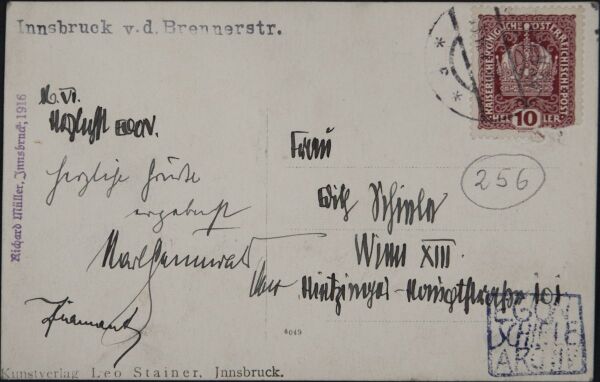 Innsbruck v.d. Brennerstr.
KAISERLICHE KÖNIGLICHE ÖSTERREICHISCHE POST
HELLER
10
Richard Müller, Innsbruck, 1916
16. VI.
Herzlichst EGON.
herzliche Grüße
ergebenst
Frau
Edith Schiele
Wien XIII.
Hietzinger-Hauptstraße 101
256
4049
EGON
SCHIELE
ARCHIV
Kunstverlag Leo Stainer, Innsbruck.